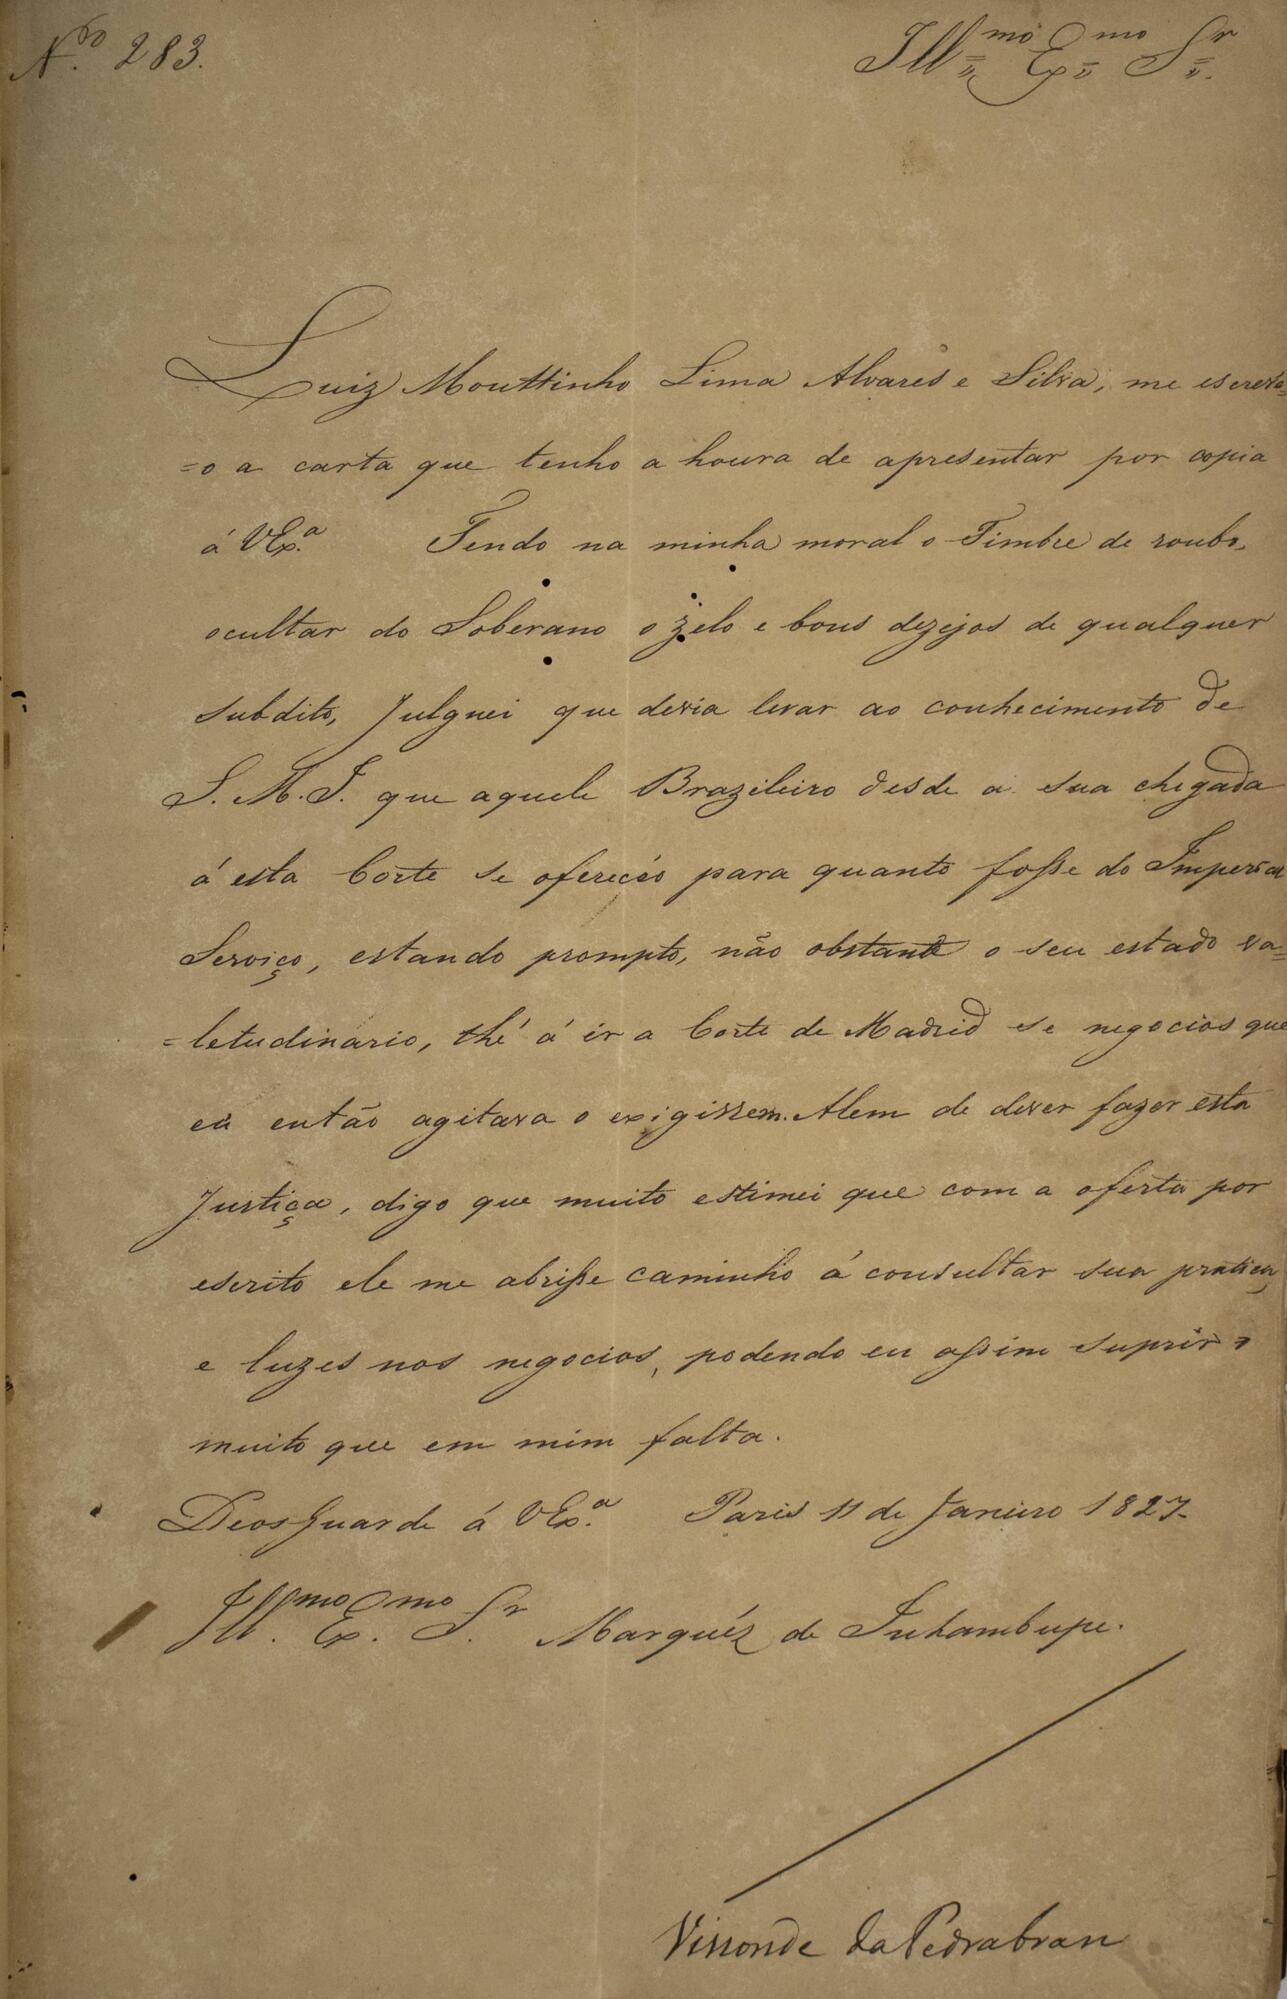 N.ro 283.
Ill.mo Ex.mo Sr.
Luiz Mouttinho Lima Alvares e Silva, me escreve=
=o a carta que tenho a honra de apresentar por copia
á VEx.a Tendo na minha moral o Timbre de
ocultar do Soberano o zelo e bons dezejos de qualquer
subdito, Julguei que devia levar ao conhecimento de
S. M. I. que aquele Brazileiro desde a sua chegada
á esta Corte se ofereceo para quanto fosse do Imperial
Serviço, estando prompto, não obstante o seu estado va=
=letudinario, thé á ir a Corte de Madrid se negocios que
eu então agitava o exigissem. Alem de dever fazer esta
Justiça, digo que muito estimei que com a oferta por
escrito ele me abrisse caminho á consultar sua pratica,
e luzes nos negocios, podendo eu assim suprir o
muito que em mim falta.
Deos Guarde á VEx.a Paris 11 de Janeiro 1827.
Ill.mo Ex.mo Sr. Marquéz de Inhambupe.
Visconde da Pedrabran